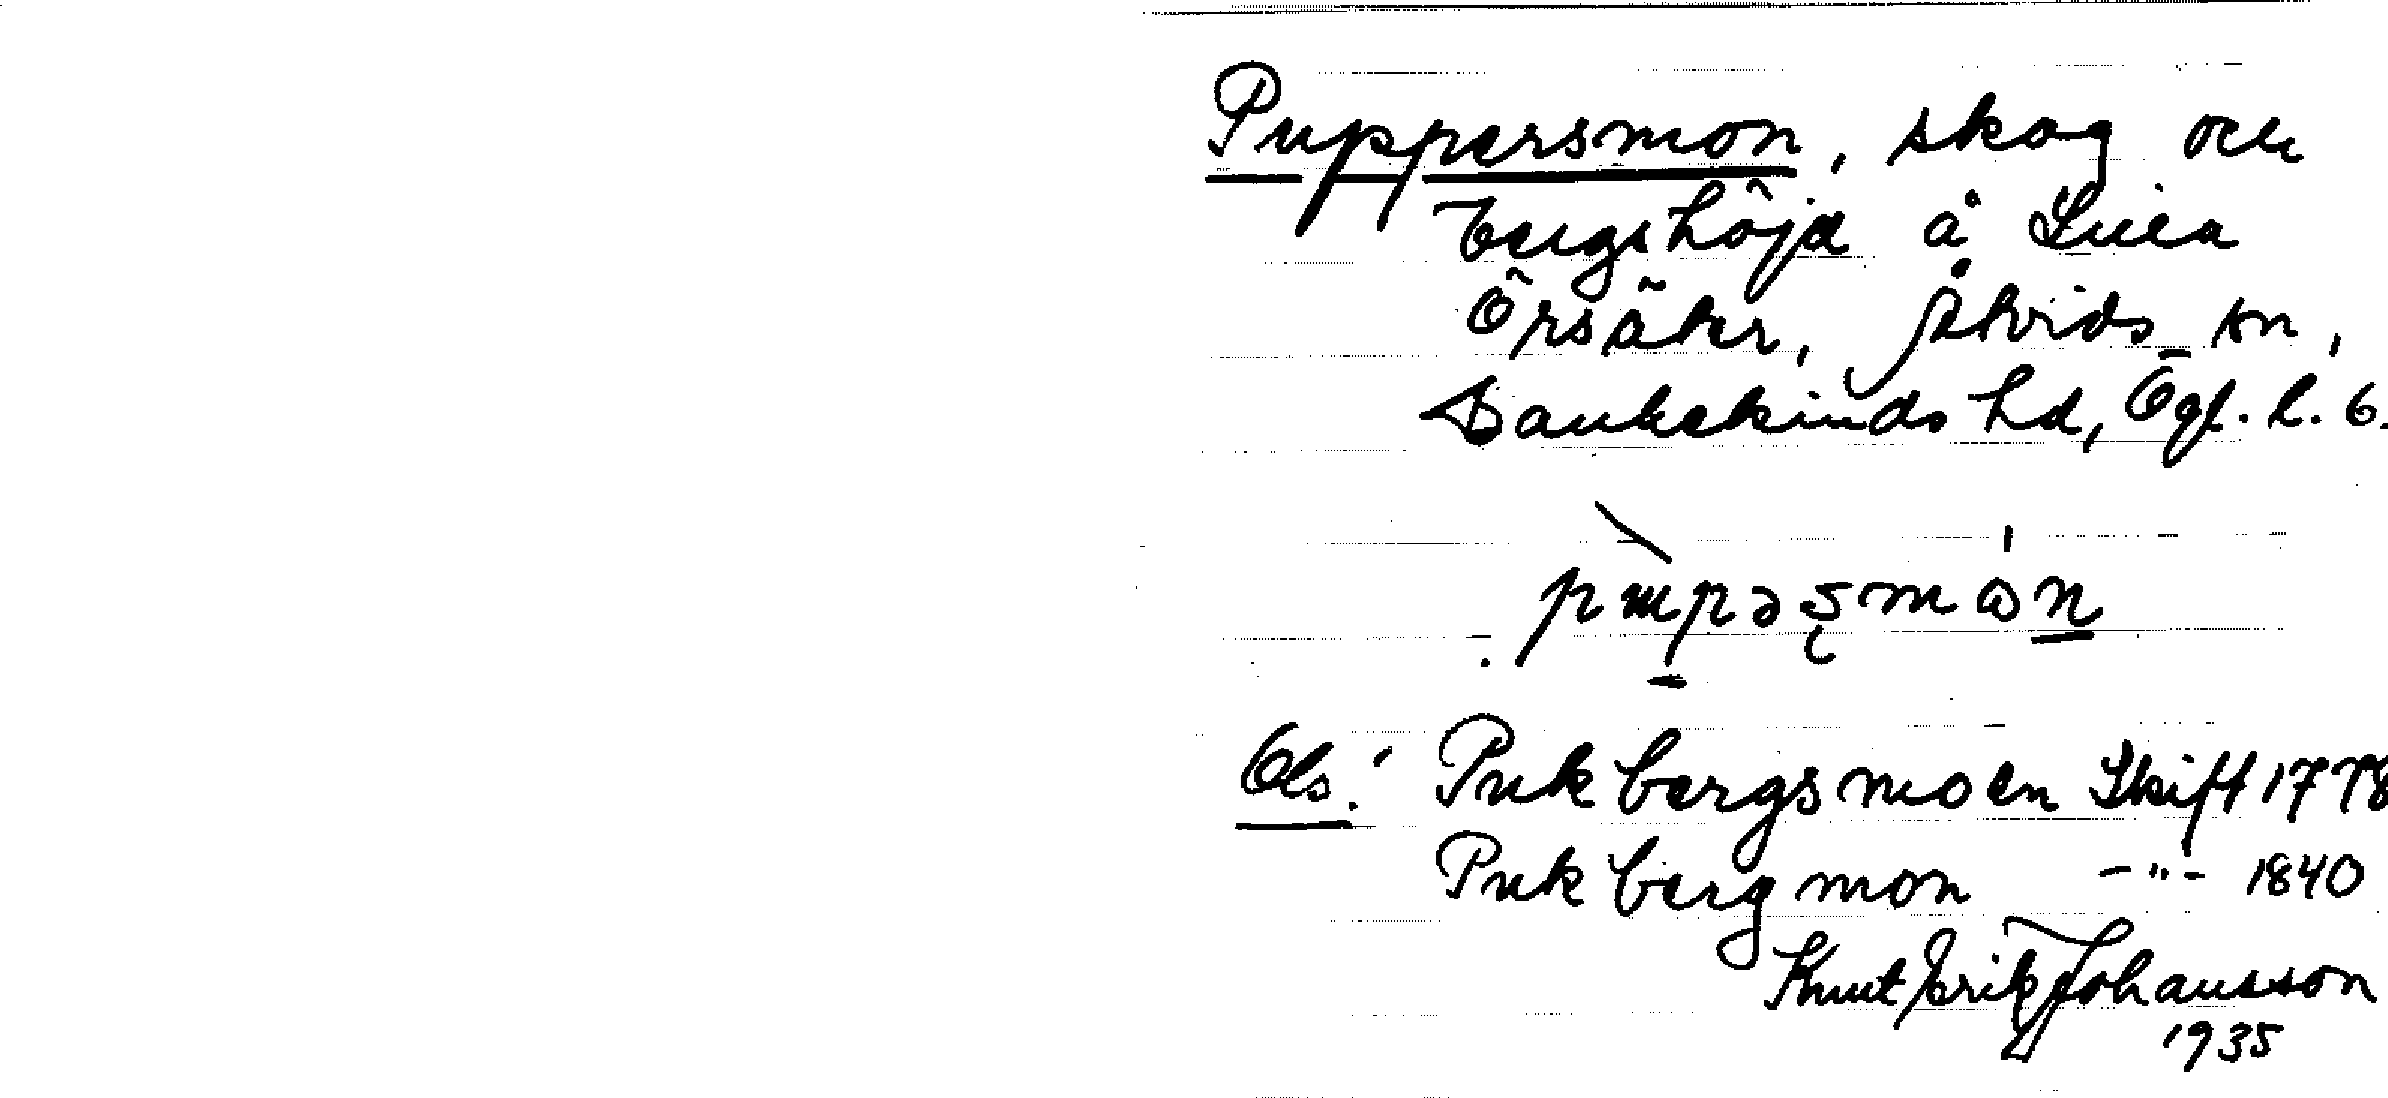 Puppersmon, skog och
bergshöjd å Lilla
Örsäter, Åtvids sn,
Bankekinds hd, Ögl. l. 6.
Obs.! Pukbergsmoen Skift 1778
Pukbergmon -"- 1840
Knut Erik Johansson
1935